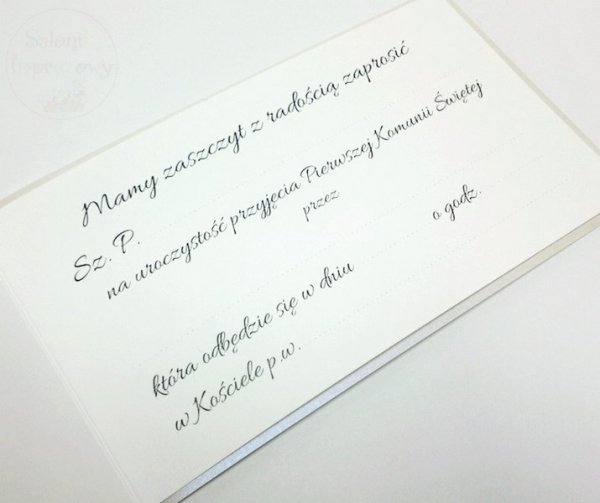 Salonik
Imprezowy
Mamy zaszczyt z radością zaprosić
Sz. P.
na uroczystość przyjęcia Pierwszej Komunii Świętej
przez
która odbędzie się w dniu o godz.
w Kościele p.w.